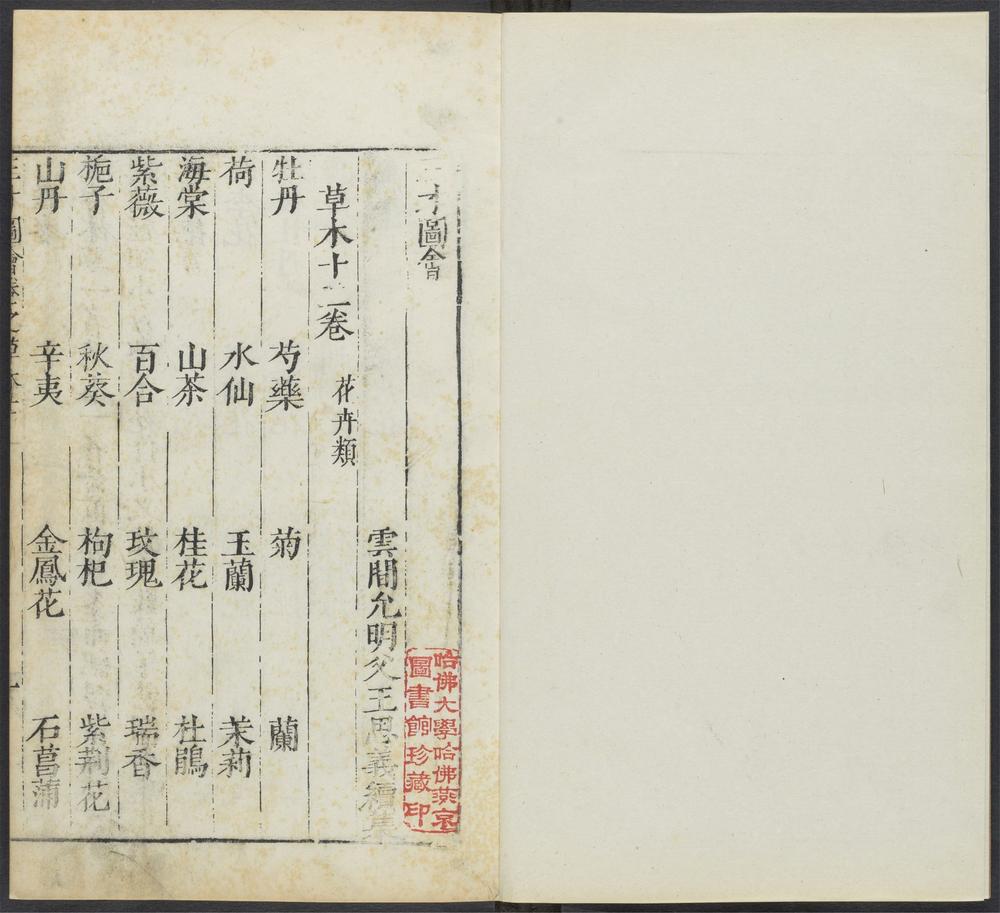 三才圖會
雲間允明父王思義續集
草木十二卷 花卉類
牡丹 芍藥 菊 蘭
荷 水仙 玉蘭 茉莉
海棠 山茶 桂花 杜鵑
紫薇 百合 玫瑰 瑞香
梔子 秋葵 枸杞 紫荊花
山丹 辛夷 金鳳花 石菖蒲
哈佛大學哈佛燕京
圖書館珍藏印